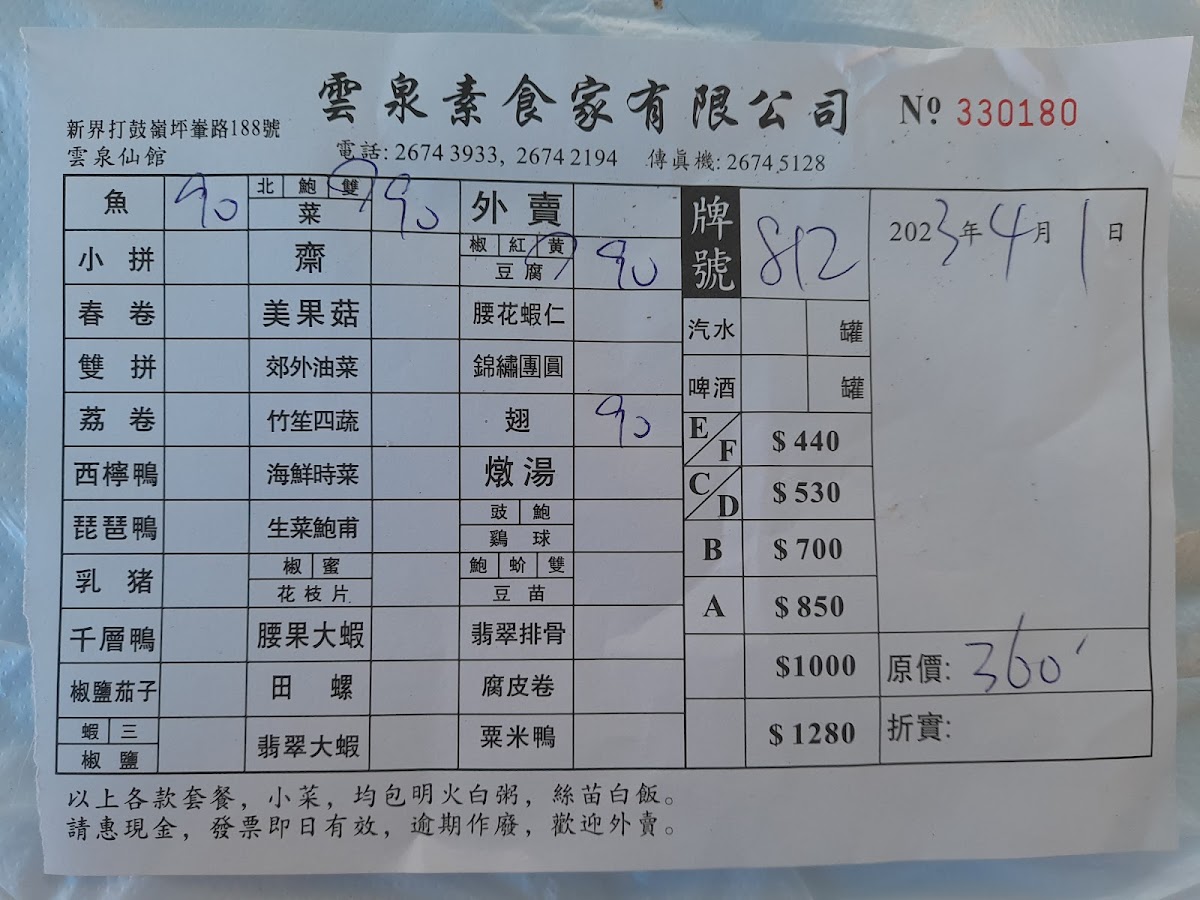 雲泉素食家有限公司 No. 330180
新界打鼓嶺坪輋路188號
雲泉仙館
電話: 2674 3933, 2674 2194 傳真機: 2674 5128
魚 90 北 鮑 雙 菜 90 外賣 牌號 812 2023年4月1日
小拼 齋 椒 紅 黄 豆腐 90
春卷 美果菇 腰花蝦仁 汽水 罐
雙拼 郊外油菜 錦繡團圓 啤酒 罐
荔卷 竹笙四蔬 翅 90 E/F $ 440
西檸鴨 海鮮時菜 燉湯 C/D $ 530
琵琶鴨 生菜鮑甫 豉 鮑 鷄球 B $ 700
乳猪 椒 蜜 花枝片 鮑 蚧 雙 豆苗 A $ 850
千層鴨 腰果大蝦 翡翠排骨 $1000 原價: 360
椒鹽茄子 田螺 腐皮卷
蝦 三 椒鹽 翡翠大蝦 粟米鴨 $ 1280 折實:
以上各款套餐，小菜，均包明火白粥，絲苗白飯。
請惠現金，發票即日有效，逾期作廢，歡迎外賣。